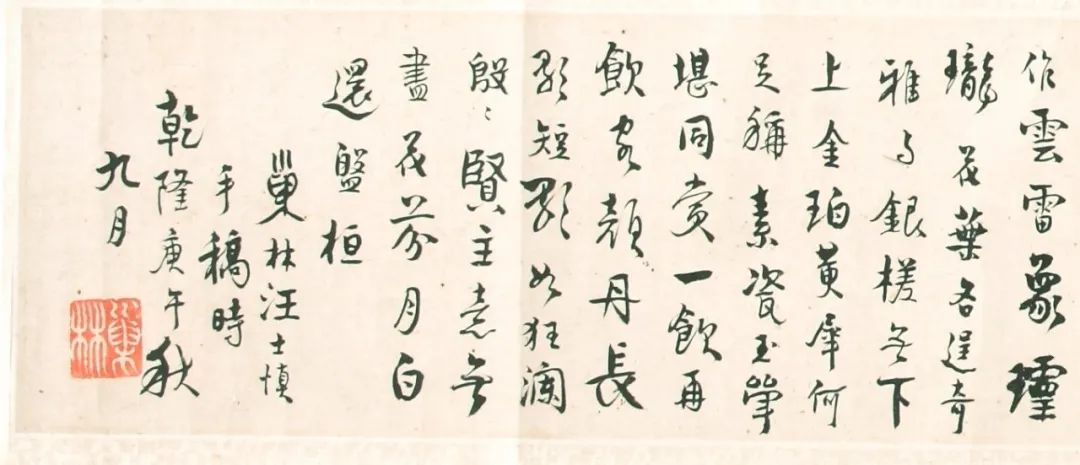 作雲雷象
瓏花葉各逞奇
雅与銀槎無下
上金珀黄犀何
足稱素瓷玉斝
堪同賞一飲再
飲客顏丹長
歌短歌如狂瀾
殷〻賢主意無
盡花芬月白
還盤桓
巢林汪士慎
手稿時
乾隆庚午秋
九月
巢林